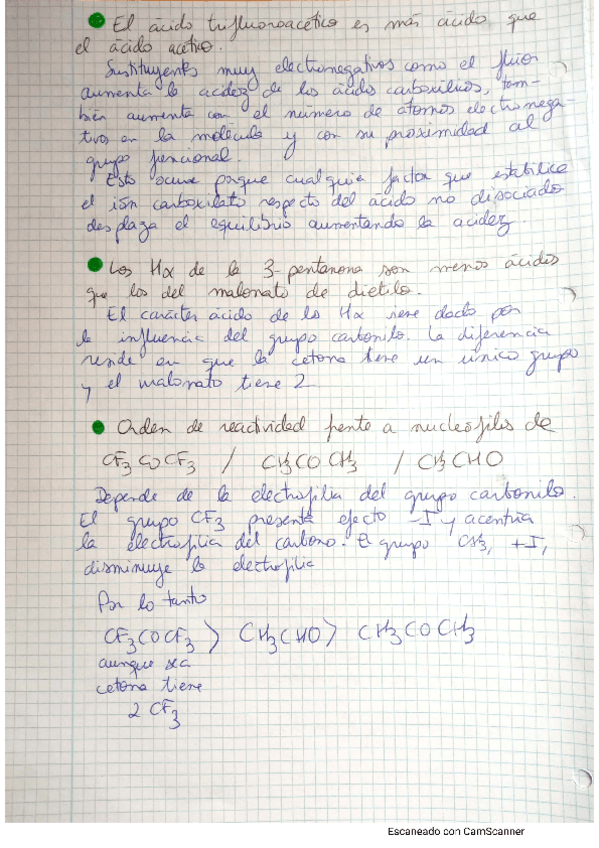 El ácido trifluoroacético es más ácido que
el ácido acético.
Sustituyentes muy electronegativos como el flúor
aumenta la acidez de los ácido carboxílicos, tam-
bién aumenta con el número de átomos electronega-
tivos en la molécula y con su proximidad al
grupo funcional.
Esto ocurre porque cualquier factor que estabilice
el ión carboxilato respecto del ácido no disociado
desplaza el equilibrio aumentando la acidez.
Los Hα de la 3-pentanona son menos ácidos
que los del malonato de dietilo.
El carácter ácido de los Hα viene dado por
la influencia del grupo carbonilo. La diferencia
reside en que la cetona tiene un único grupo
y el malonato tiene 2
Orden de reactividad frente a nucleófilos de
CF3COCF3 / CH3COCH3 / CH3CHO
Depende de la electrofilia del grupo carbonilo.
El grupo CF3 presenta efecto -I y acentúa
la electrofilia del carbono. El grupo CH3, +I,
disminuye la electrofilia
Por lo tanto
CF3COCF3 > CH3CHO > CH3COCH3
aunque sea
cetona tiene
2 CF3
Escaneado con CamScanner